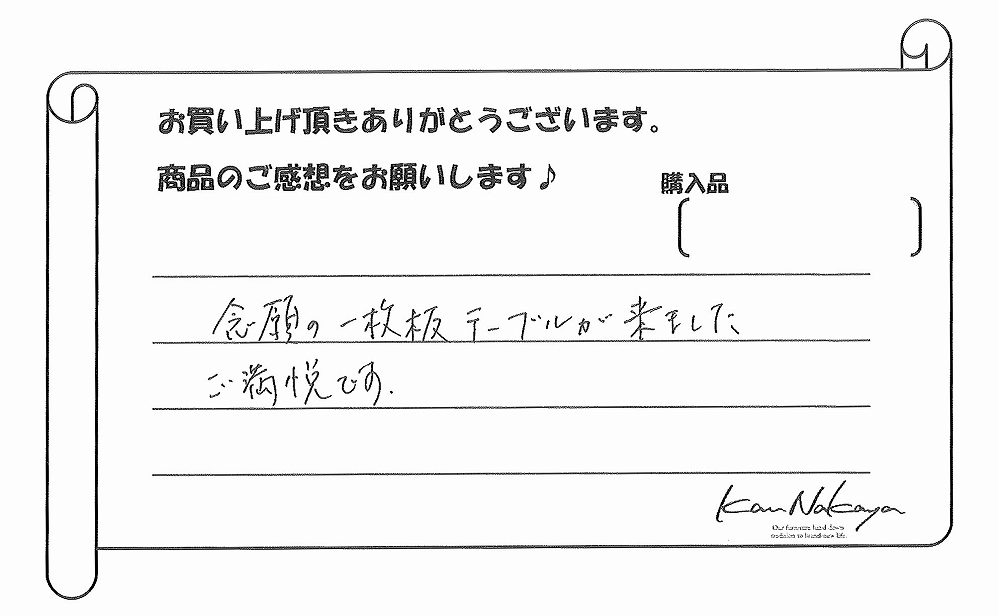 お買い上げ頂きありがとうございます。
商品のご感想をお願いします♪
購入品
念願の一枚板テーブルが来ました
ご満悦です.
Kan Nakaya
Our furniture hand down
tradition to brand-new life.